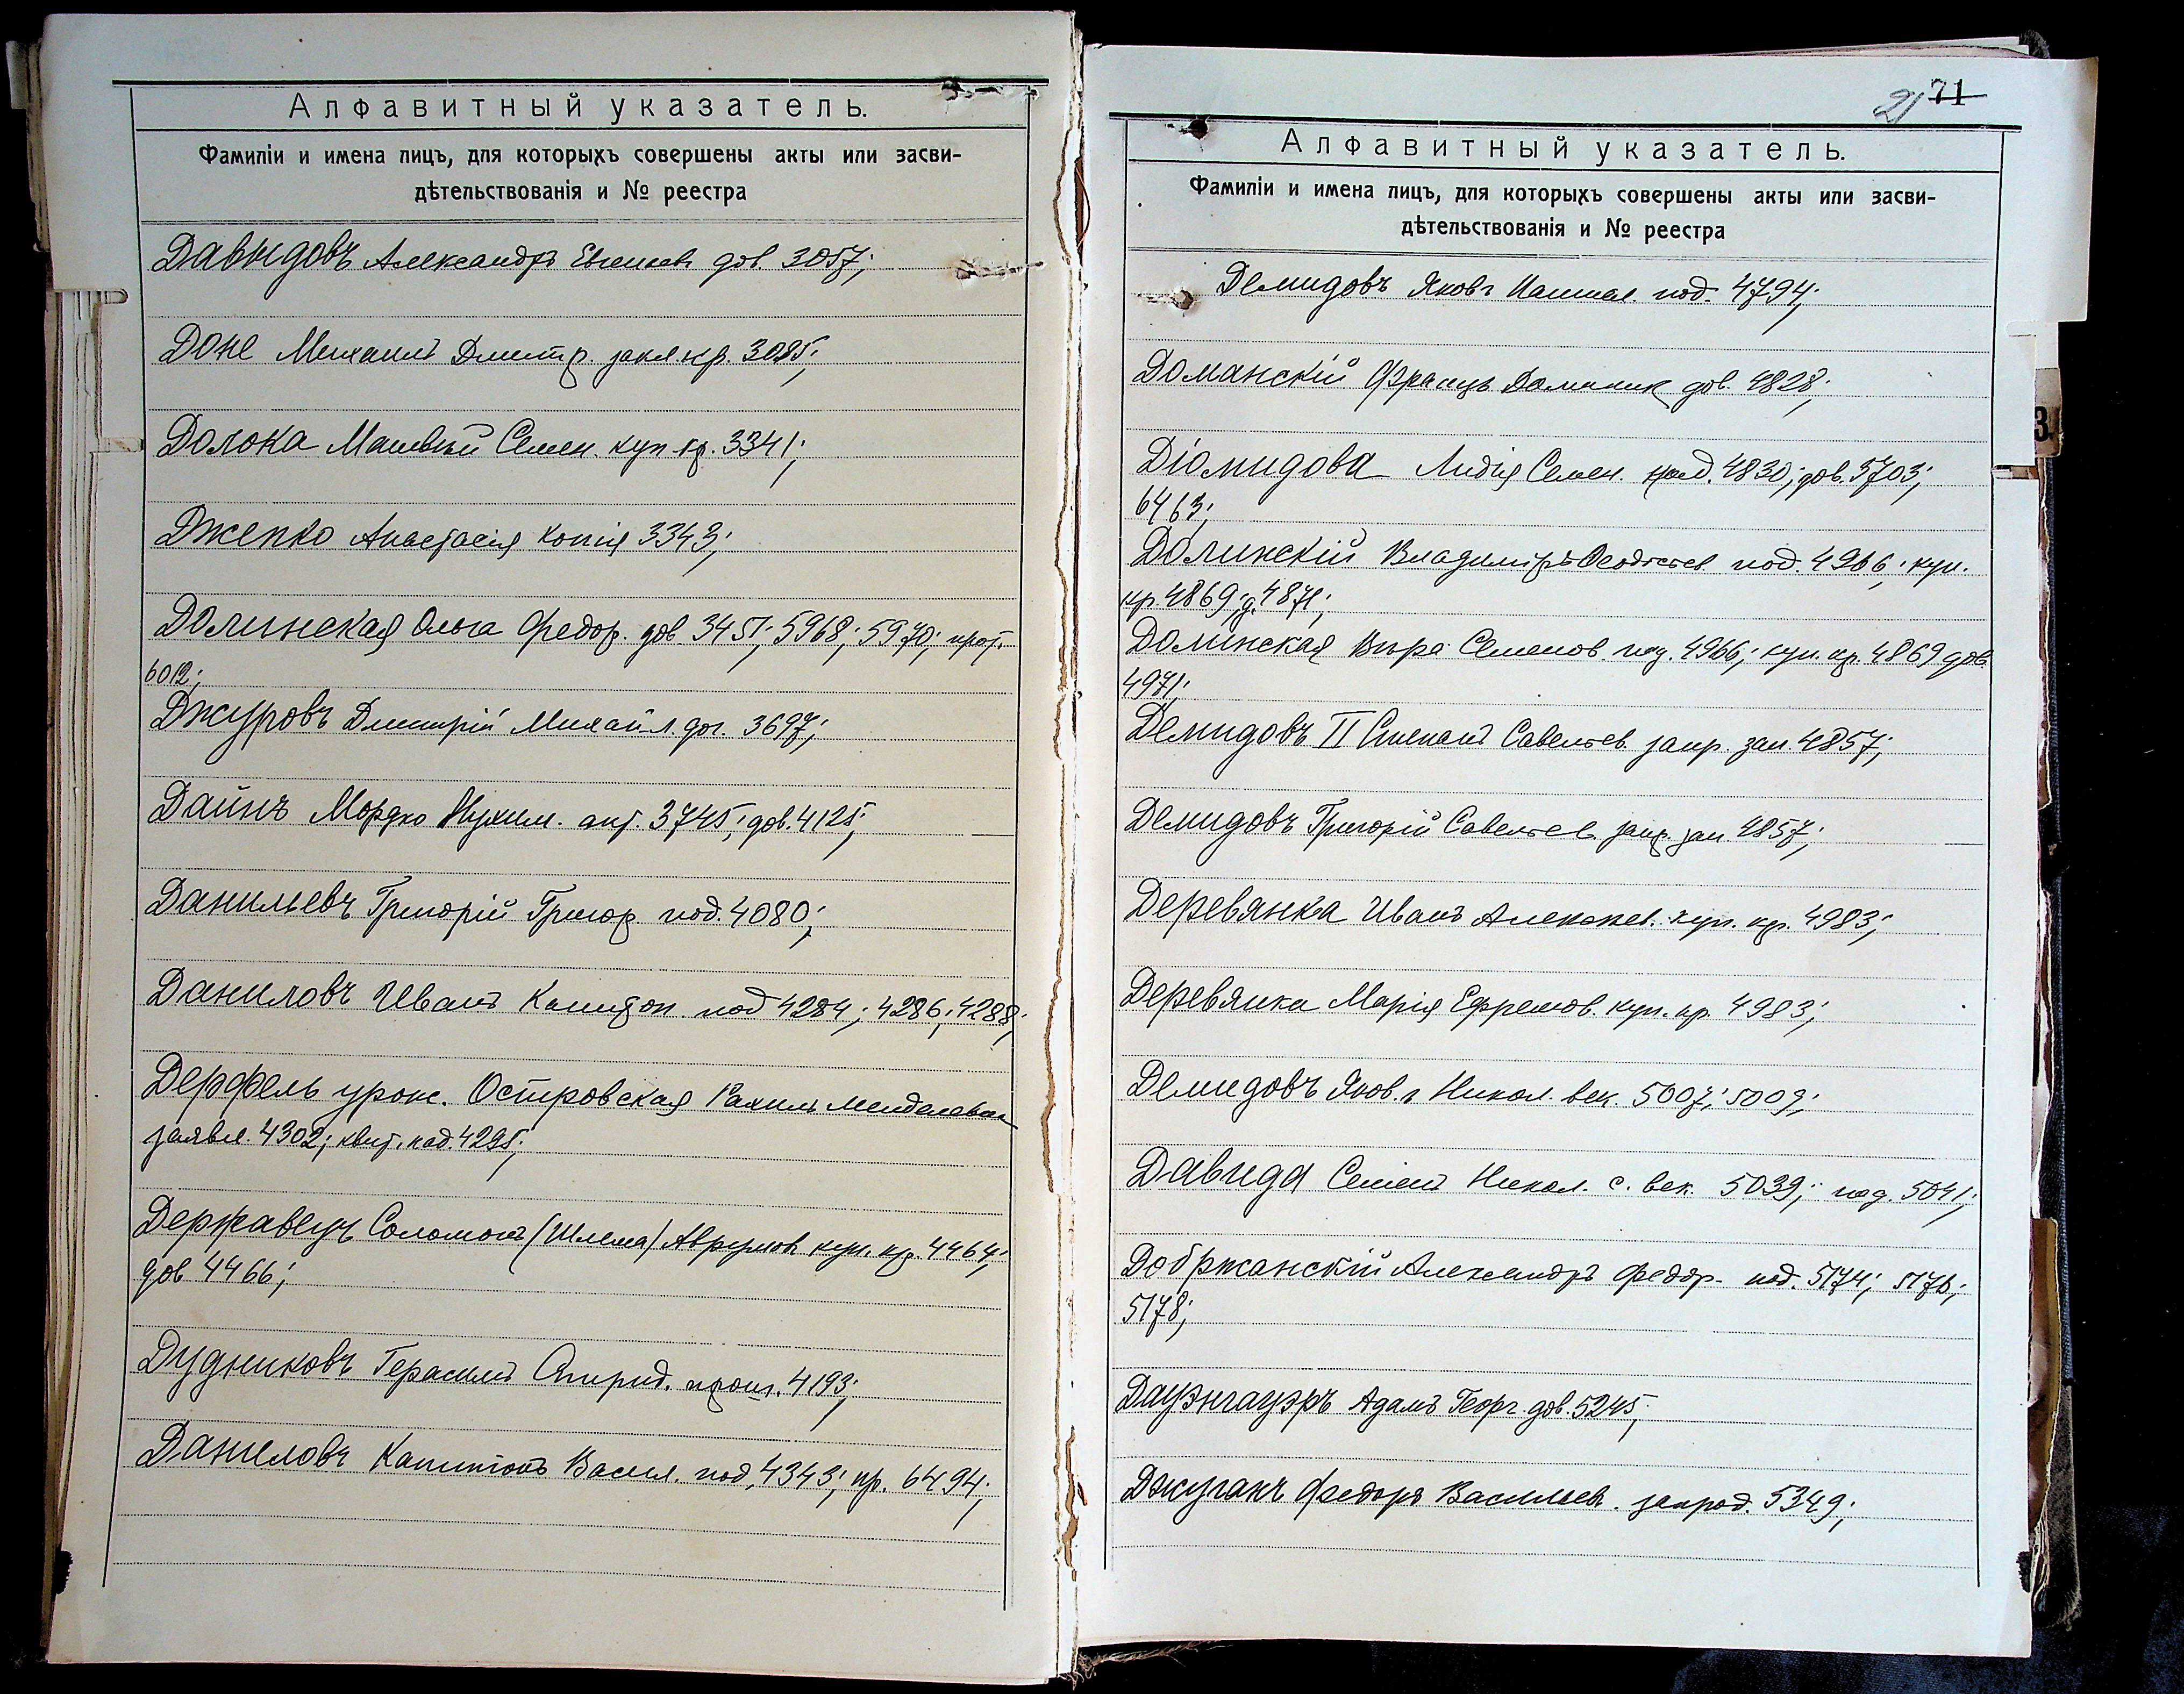 Алфавитный указатель.
Фамиліи и имена лицъ, для которыхъ совершены акты или засви-
дѣтельствованія и № реестра
Давыдовъ Александръ Евгеніев. дов. 3057;
Доне Михаилъ Дмитр. закл. кр. 3095;
Долока Матвѣй Семен. куп. кр. 3341;
Джепко Анастасія копія 3343;
Долинская Ольга Федор. дов. 3451; 5968; 5970; прот.
6012;
Джуровъ Дмитрій Михайл. дог. 3697;
Дайнъ Мордко Нухим. акт. 3745; дов. 4125;
Данильевъ Григорій Григор. под. 4080;
Даниловъ Иванъ Капитон. под 4284; 4286; 4288;
Дерфель урож. Островская Рахиль Менделевна
заявл. 4302; квит. под. 4295;
Державецъ Соломонъ (Шлема) Аврумов. куп. кр. 4464;
дов 4466;
Дудниковъ Герасимъ Спирид. 4193;
Даниловъ Капитонъ Васил. под. 4343; пр. 6494;
21 71
Алфавитный указатель.
Фамиліи и имена лицъ, для которыхъ совершены акты или засви-
дѣтельствованія и № реестра
Демидовъ Яковъ под. 4794;
Доманскій Францъ Доминик. дов. 4828;
Діомидова Лидія Семен. 4830; дов. 5703;
6463;
Долинскій Владиміръ под. 4966; куп.
кр 4869; д. 4871;
Долинская Вѣра Семенов. под. 4966; куп. кр. 4869 дов.
4971;
Демидовъ II Степанъ Савельев. запр. зап. 4857;
Демидовъ Григорій Савельев. запр. зап. 4857;
Деревянка Иванъ Алексѣев. куп. кр. 4983;
Деревянка Марія Ефремов. куп. кр. 4983;
Демидовъ Яков.ъ Никол. век. 5007; 5009;
Давида Семенъ Никол. с. век. 5039; под. 5041;
Добржанскій Александръ Федор. под. 5174; 5176;
5178;
Дауэнгауэръ Адамъ Георг. дов. 5245;
Джуганъ Федоръ Васильев. запрод. 5349;